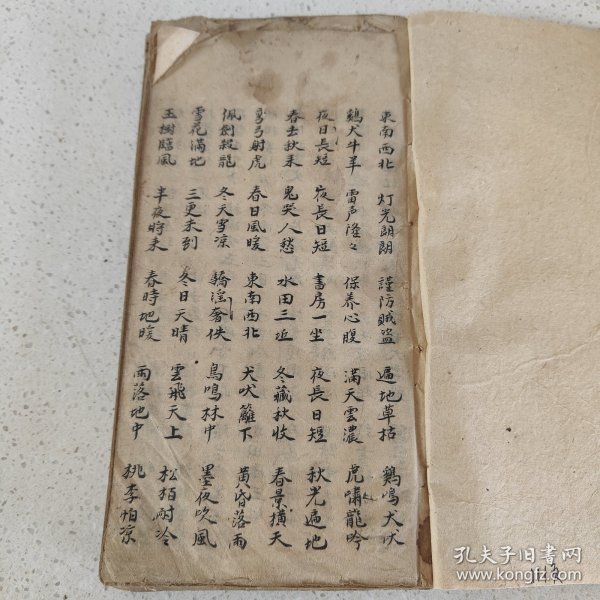 東南西北 灯光朗朗 謹防賊盗 遍地草枯 鷄鳴犬吠
鷄犬牛羊 雷声隆々 保养心腹 滿天雲濃 虎嘯龍吟
夜日長短 夜長日短 書房一坐 夜長日短 秋光遍地
春去秋來 鬼哭人愁 水田三坵 冬藏秋收 春景横天
弯弓射虎 春日風暖 東南西北 犬吠籬下 黄昏落雨
佩劍殺龍 冬天雪凉 驕淫奢佚 鳥鳴林中 墨夜吹風
雪花滿地 三更未到 冬日天晴 雲飛天上 松柏耐冷
玉樹臨風 半夜時来 春時地暖 雨落地中 桃李怕凉
孔夫子旧书网
www.kongfz.com